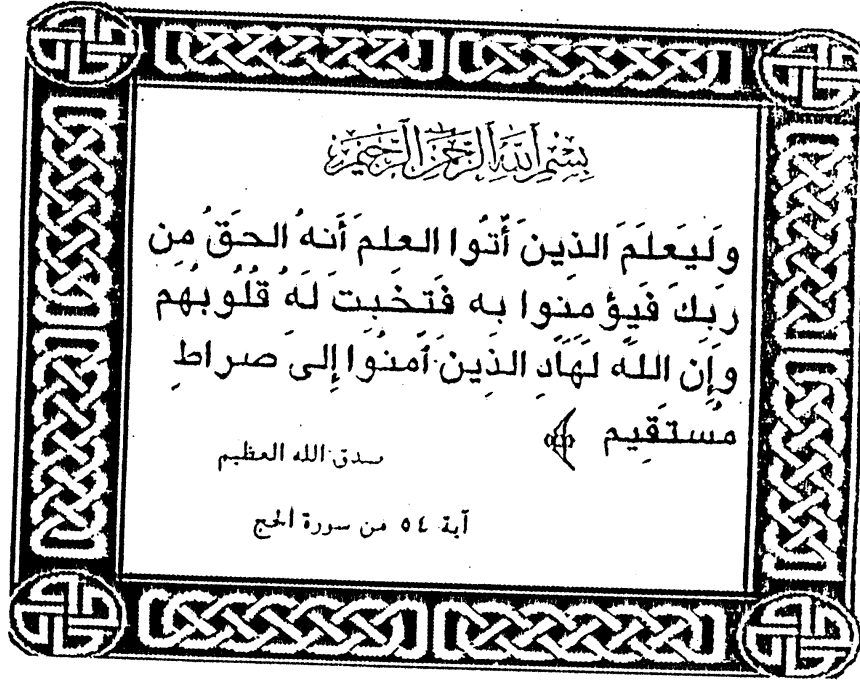 بِسْمِ اللَّهِ الرَّحْمَنِ الرَّحِيمِ
وَليَعلَمَ الذِينَ أُتُوا العلمَ أَنهُ الحَقُ مِن
رَبِكَ فَيؤمنَوا به فَتخَبِتَ لَهُ قُلُوبُهُم
وَإِن اللَه لَهَادِ الذِينَ آمنُوا إِلىَ صراطِ
مُستَقِيم
صدق الله العظيم
آية ٥٤ من سورة الحج